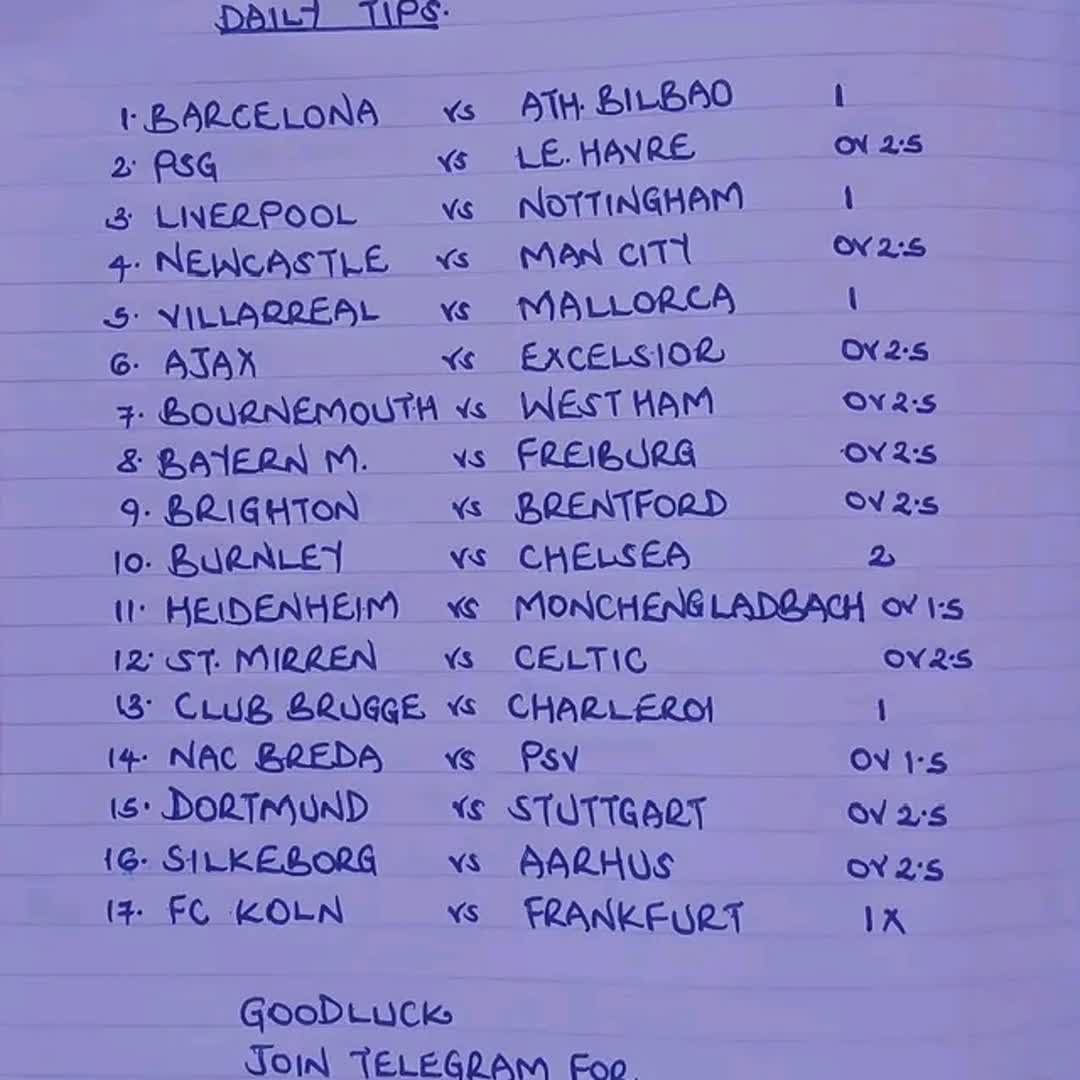 DAILY TIPS.
1. BARCELONA vs ATH. BILBAO 1
2. PSG vs LE. HAVRE OV 2.5
3. LIVERPOOL vs NOTTINGHAM 1
4. NEWCASTLE vs MAN CITY OV 2.5
5. VILLARREAL vs MALLORCA 1
6. AJAX vs EXCELSIOR OV 2.5
7. BOURNEMOUTH vs WEST HAM OV 2.5
8. BAYERN M. vs FREIBURG OV 2.5
9. BRIGHTON vs BRENTFORD OV 2.5
10. BURNLEY vs CHELSEA 2
11. HEIDENHEIM vs MONCHENGLADBACH OV 1.5
12. ST. MIRREN vs CELTIC OV 2.5
13. CLUB BRUGGE vs CHARLEROI 1
14. NAC BREDA vs PSV OV 1.5
15. DORTMUND vs STUTTGART OV 2.5
16. SILKEBORG vs AARHUS OV 2.5
17. FC KOLN vs FRANKFURT 1X
GOODLUCK
JOIN TELEGRAM FOR